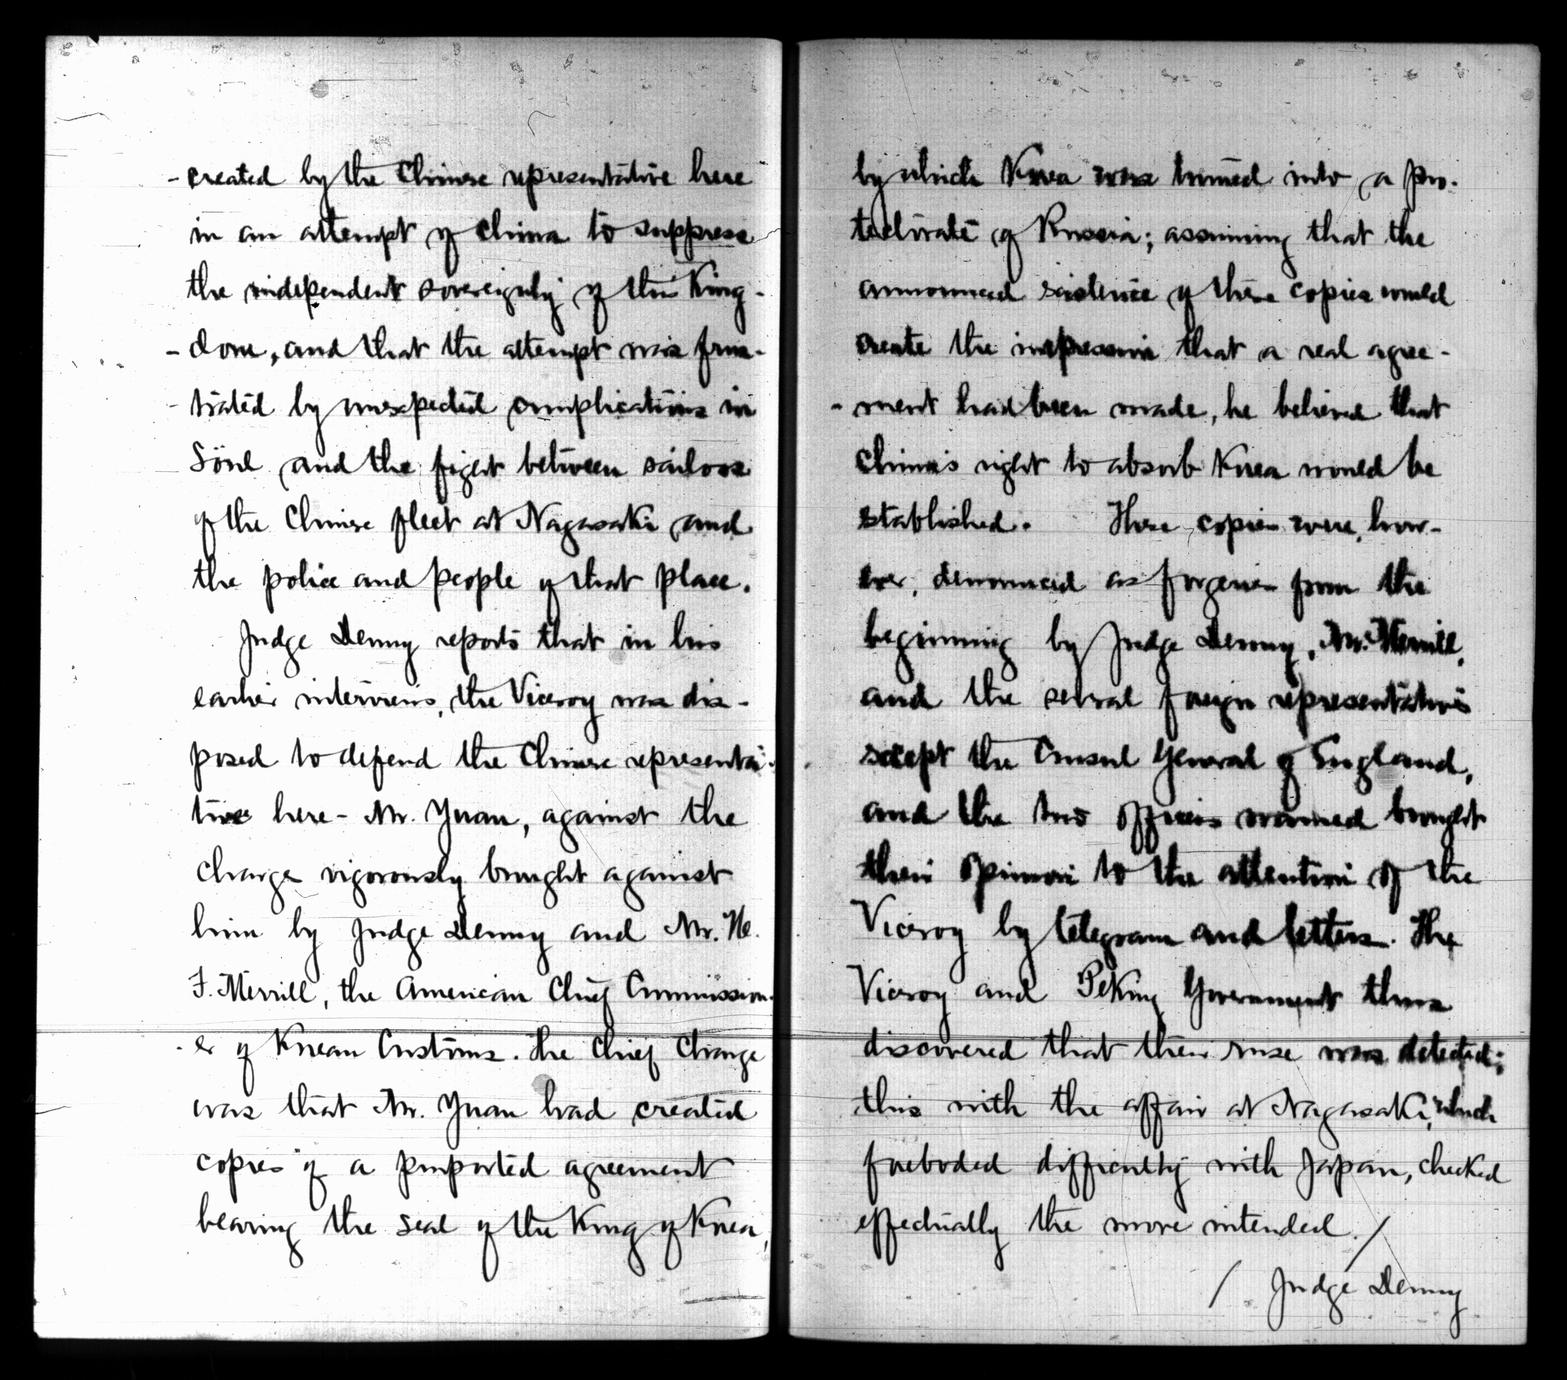 - created by the Chinese representative here
in an attempt of China to suppress
the independent sovereignty of this King-
- dom, and that the attempt was frus-
- trated by unexpected complications in
Söul and the fight between sailors
of the Chinese fleet at Nagasaki and
the police and people of that place.
Judge Denny reports that in his
earlier interviews, the Viceroy was dis-
posed to defend the Chinese representa-
tive here - Mr. Yuan, against the
charge vigorously brought against
him by Judge Denny and Mr. H.
F. Merrill, the American Chief Commission-
- er of Korean Customs. The Chief Charge
was that Mr. Yuan had created
copies of a purported agreement
bearing the seal of the King of Korea,
by which Korea was turned into a pro-
tectorate of Russia; assuming that the
announced existence of these copies would
create the impression that a real agree-
- ment had been made, he believed that
China's right to absorb Korea would be
established. These copies were, how-
ever, denounced as forgeries from the
beginning by Judge Denny, Mr. Merrill,
and the several foreign representatives
except the Consul General of England,
and the two officers named brought
their opinion to the attention of the
Viceroy by telegram and letters. The
Viceroy and Peking Government thus
discovered that their ruse was detected;
this with the affair at Nagasaki, which
foreboded difficulty with Japan, checked
effectually the move intended. /
/ Judge Denny